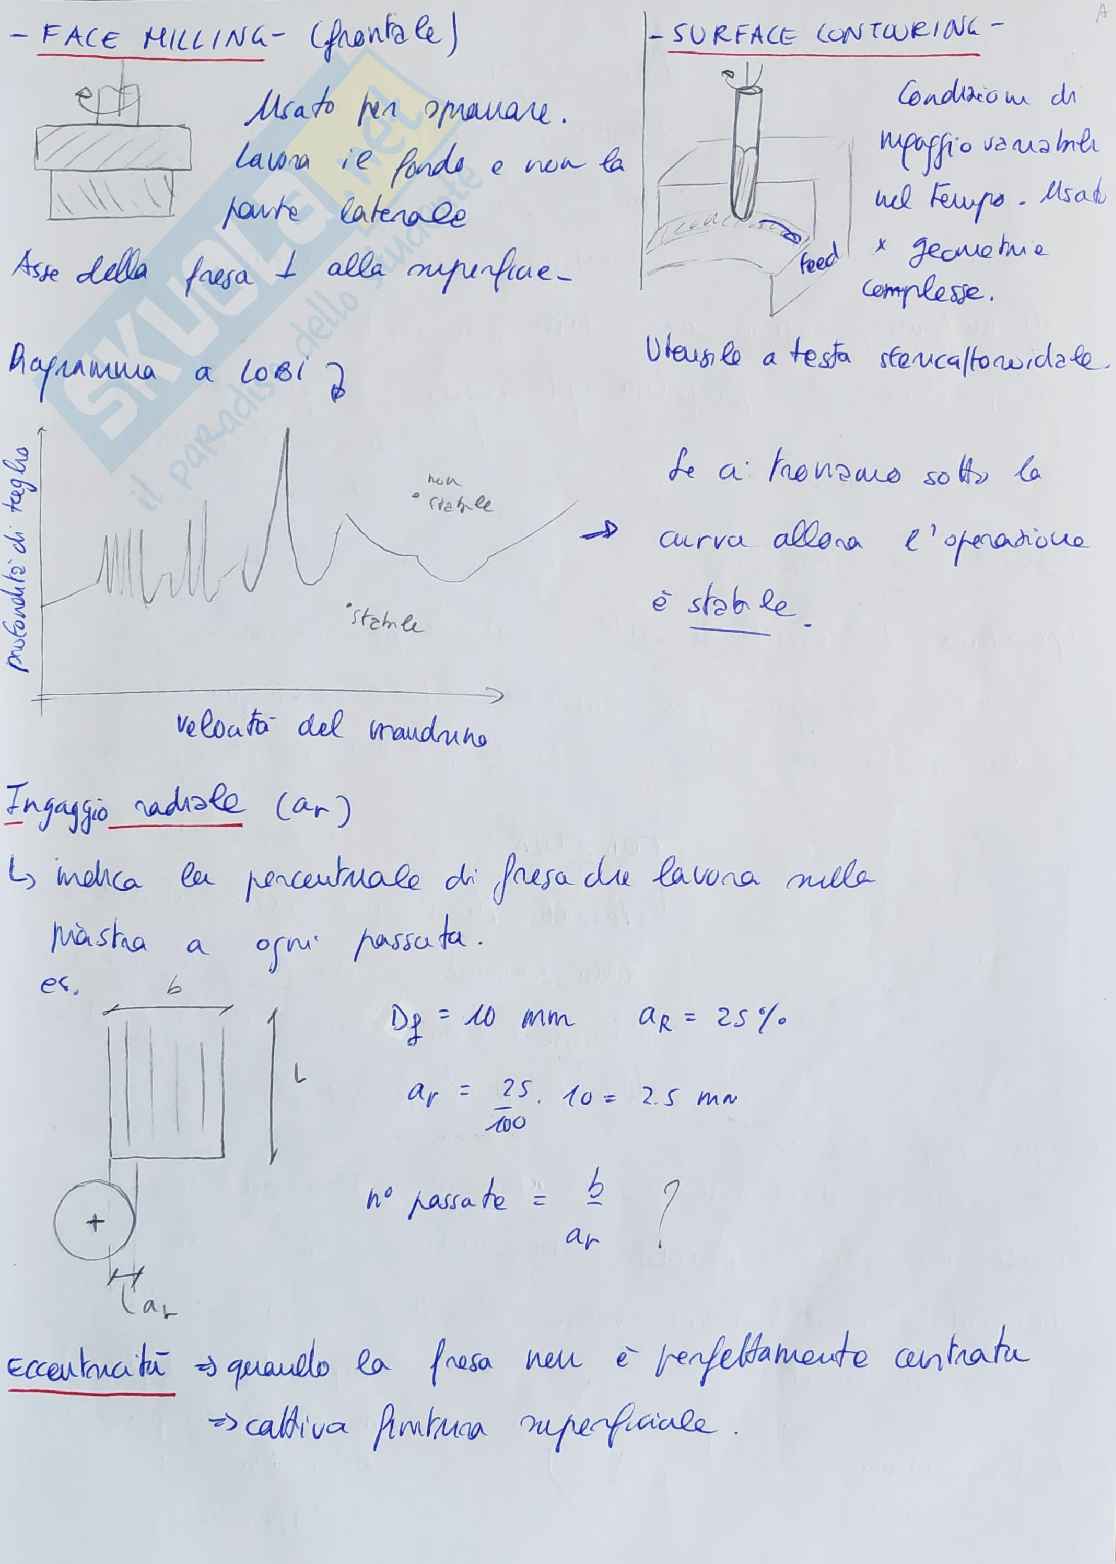 - FACE MILLING - (frontale)
Usato per spianare.
Lavora il fondo e non la
parte laterale
Asse della fresa ⊥ alla superficie-
- SURFACE CONTOURING -
Condizioni di
ingaggio variabili
nel tempo. Usato
x geometrie
complesse.
feed
Utensile a testa sferica/toroidale.
Diagramma a LOBI
profondità di taglio
non
stabile
stabile
velocità del mandrino
→ Se ci troviamo sotto la
curva allora l'operazione
è stabile.
Ingaggio radiale (ar)
↳ indica la percentuale di fresa che lavora nella
piastra a ogni passata.
es.
b
L
ar
Df = 10 mm aR = 25%
ar = 25/100 . 10 = 2.5 mm
n° passate = b/ar ?
Eccentricità ⇒ quando la fresa non è perfettamente centrata
⇒ cattiva finitura superficiale.
SKUOLA.net
il paradiso dello studente